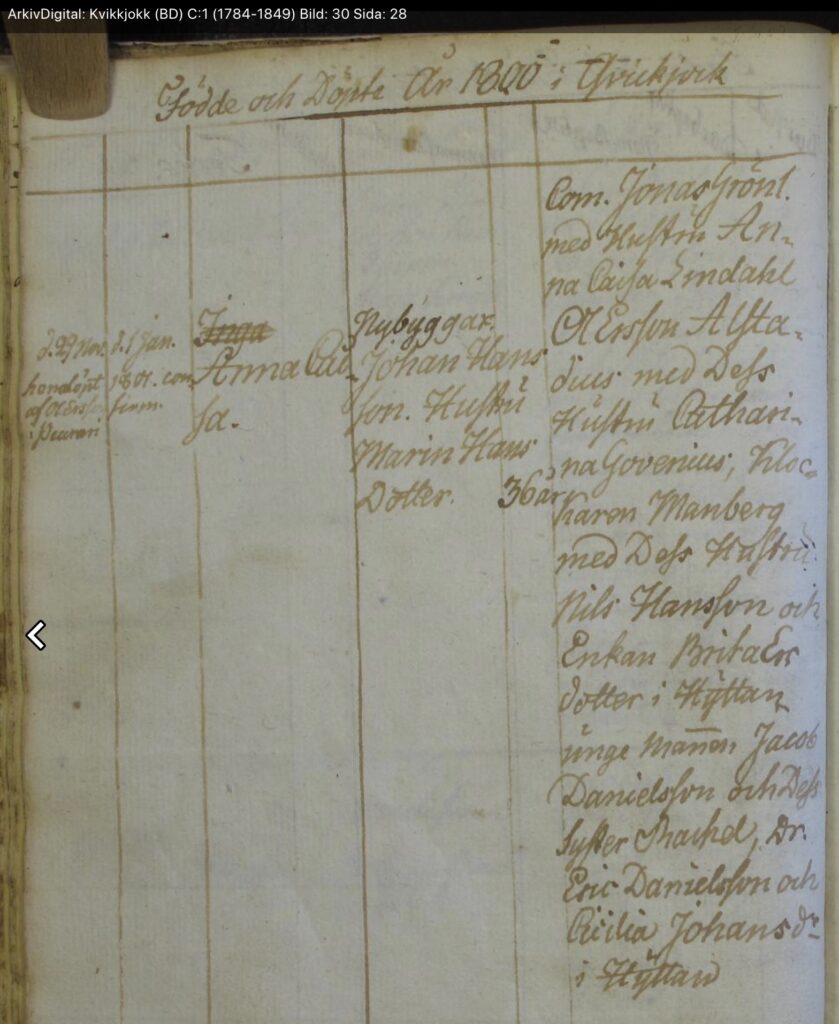 ArkivDigital: Kvikkjokk (BD) C:1 (1784-1849) Bild: 30 Sida: 28
Födde och Döpte År 1800 i Qvickjock
d. 29 Nov.
hemdöpt
af Ol Ersson
i
d. 1 Jan.
1801. con
firm.
Inga
Anna Cai
sa.
Nybyggar.
Johan Hans
son. Hustru
Marin Hans
Dotter.
36 år
Com. Jonas Grönl.
med Hustru An-
na Caisa Lindahl
Ol Ersson Alsta-
dius med Dess
Hustru Cathari-
na Govenius, Kloc-
karen Manberg
med Dess Hustru
Nils Hansson och
Enkan Brita Ers
dotter i Hyttan
unge Mannen Jacob
Danielsson och Dess
Syster Rachel, Dr.
Eric Danielsson och
Cicilia Johansdr
i Hyttan